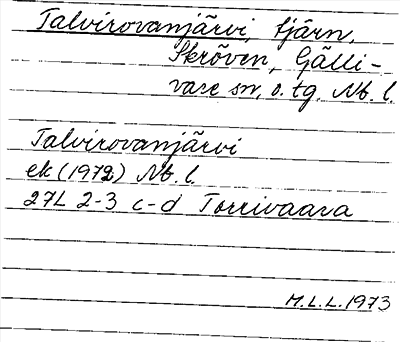 Talvirovanjärvi, tjärn,
Skröven, Gälli-
vare sn, o. tg. Nb. l.
Talvirovanjärvi
ek (1972) Nb. l.
27L 2-3 c-d Torrivaara
M.L.L. 1973